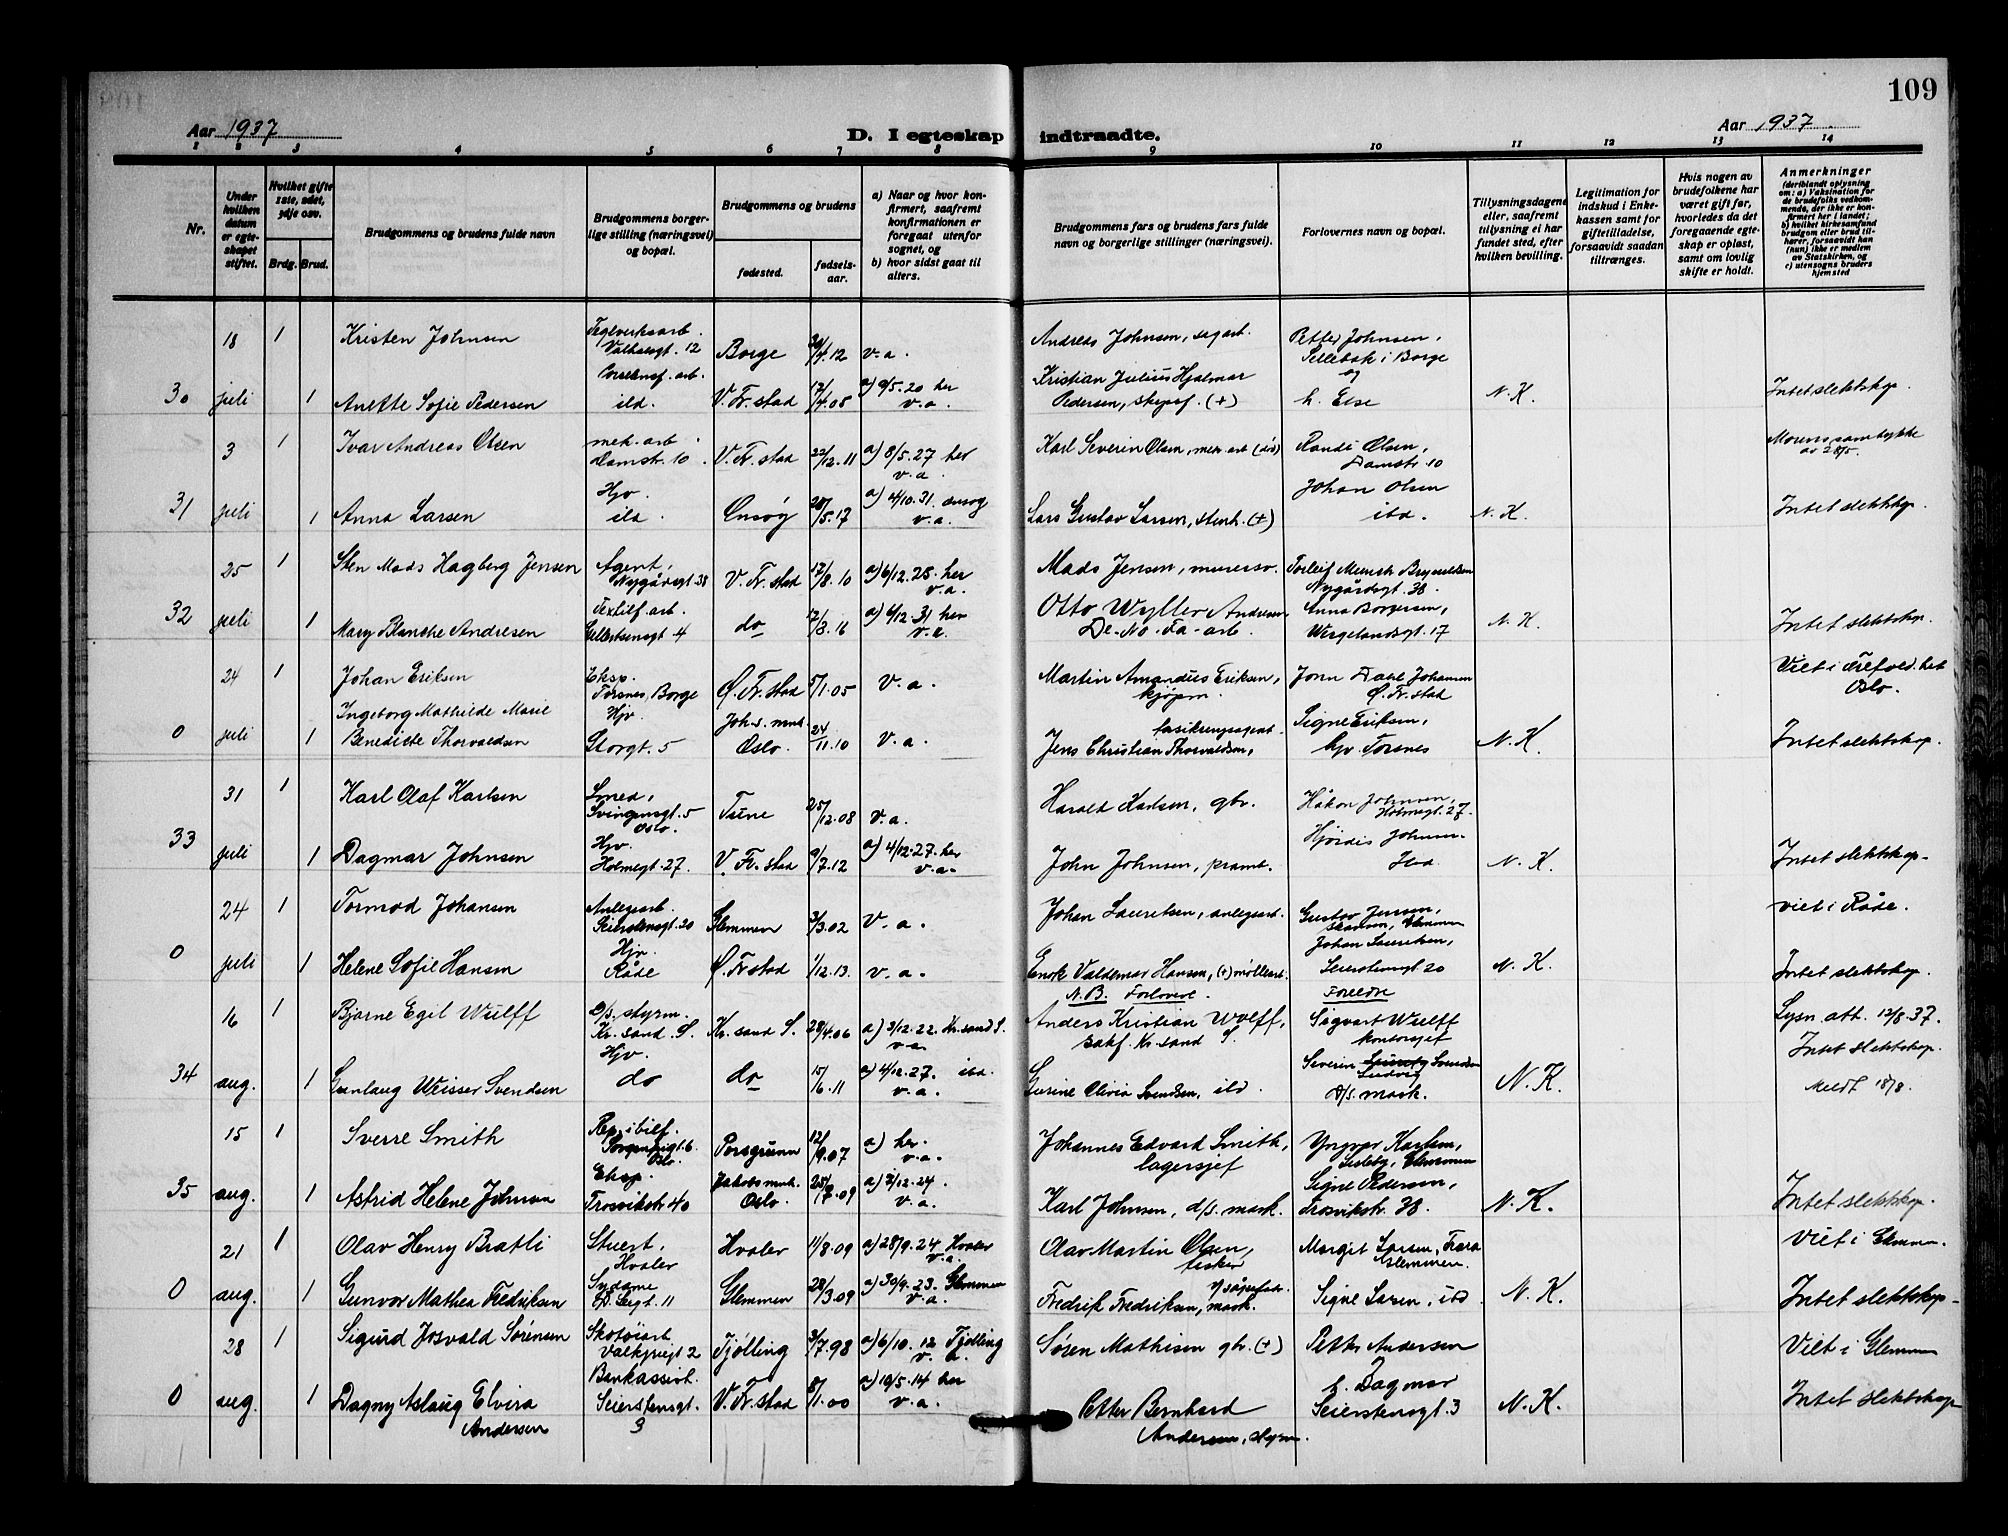 109
Aar 1937
D. I egteskap indtraadte.
Aar 1937.
1 2 3 4 5 6 7 8 9 10 11 12 13 14
Nr.
Under hvilken datum er egteskapet stiftet.
Hvilket gifte 1ste, 2det, 3dje osv.
Brdg. Brud.
Brudgommens og brudens fulde navn
Brudgommens borgerlige stilling (næringsvei) og bopæl.
Brudgommens og brudens
fødested.
fødselsaar.
a) Naar og hvor konfirmert, saafremt konfirmationen er foregaat utenfor sognet, og
b) hvor sidst gaat til alters.
Brudgommens fars og brudens fars fulde navn og borgerlige stillinger (næringsvei).
Forlovernes navn og bopæl.
Tillysningsdagene eller, saafremt tillysning ei har fundet sted, efter hvilken bevilling.
Legitimation for indskud i Enkekassen samt for giftetilladelse, forsaavidt saadan tiltrænges.
Hvis nogen av brudefolkene har været gift før, hvorledes da det foregaaende egteskap er opløst, samt om lovlig skifte er holdt.
Anmerkninger (deriblandt oplysning om: a) Vaksination for de brudefolks vedkommende, der ikke er konfirmert her i landet; b) hvilket kirkesamfund brudgom eller brud tilhører, forsaavidt han (hun) ikke er medlem av Statskirken, og c) utensogns bruders hjemsted
18 1 Kristen Johnsen Teglverksarb. Valhalsgt. 12 Borge 12 v.a. Andreas Johnsen, sagarb. Petter Johnsen, Sellebak i Borge
30 juli 1 Anette Sofie Pedersen ibd. V. Fr.stad 17/4.08 a) 9/5.20 her v.a. Kristian Julius Hjalmar Pedersen, skipsf. (+) og h. Else N.K. Intet slektskap.
3 1 Ivar Andreas Olsen mek. arb. Damstr. 10 V. Fr.stad 22/12.11 a) 8/5.27 her v.a. Karl Severin Olsen, mek. arb (død) Randi Olsen, Damstr. 10 Morens samtykke av 28/5.
31 juli 1 Anna Larsen Hjv. ibd. Onsøy 28/5.17 a) 4/10.31. Onsøy v.a. Lars Gustav Larsen, stenh. (+) Johan Olsen ibd. N.K. Intet slektskap.
25 1 Sten Mads Hagberg Jensen Agent, Nygårdsgt. 38 V. Fr.stad 17/8.10 a) 6/12.25. her v.a. Mads Jensen, murersv. Torleif Munch Brynildsen Nygårdsgt. 38.
32 juli 1 Mary Blanche Andresen Textilf. arb. Gilbertsensgt 4 do 17/8.16 a) 6/12.31 her v.a. Otto Wyller Andresen De-No-Fa-arb. Anna Borgersen, Wergelandsgt. 17 N.K. Intet slektskap.
24 1 Johan Eriksen Eksp. Torsnes, Borge Ø. Fr.stad 5/1.05 v.a. Martin Amandus Eriksen, kjøpm. Jonn Dahl Johansen Ø. Fr.stad Viet i Oslo.
0 juli 1 Ingeborg Mathilde Marie Benedicte Thorvaldsen Hjv. Storgt. 5 Joh.s. mnh. Oslo. 24/11.10 v.a. Jens Christian Thorvaldsen, Signe Eriksen, hjv. Torsnes N.K. Intet slektskap.
31 1 Karl Olaf Karlsen Smed, Svingensgt. 5 Oslo. Tune 25/12.08 v.a. Harald Karlsen, gbr. Håkon Johnsen, Holmegt. 27.
33 juli 1 Dagmar Johnsen Hjv. Holmegt. 27. V. Fr.stad 9/7.12 a) 4/12.27. her v.a. John Johnsen, pramt. Hjørdis Johnsen Ibd. N.K. Intet slektskap.
24 1 Tormod Johansen Anlegsarb. Seierstensgt. 20 Glemmen 3/3.02 v.a. Johan Lauritsen, anlegsarb. Gustav Jensen, Glemmen viet i Råde.
0 juli 1 Helene Sofie Hansen Hjv. Råde Ø. Fr.stad 1/12.13. v.a. Enok Valdemar Hansen, (+) møllearb. Johan Lauritsen, Seierstensgt 20 N.K. Intet slektskap.
N.B. Forlovere. Foreldre
16 1 Bjarne Egil Wulff D/s. styrm. Kr.sand S. Kr.sand S. 28/4.06 a) 3/12.22. Kr.sand S. v.a. Anders Kristian Wulff, Kr.sand S. Sigvart Wulff kontorsjef Lysn. att. 12/8.37.
34 aug. 1 Gunlaug Weisser Svendsen Hjv. do do 15/6.11 a) 4/12.27. ibd. v.a. Gurine Olivia Svendsen, ibd Severin Ludvig Svendsen D/s. mask. N.K. Intet slektskap. Meldt 18/8.
15 1 Sverre Smith Rep. i bilf. Sorgenfrigt. 6 Oslo. Porsgrunn 12/9.07 a) her. v.a. Johannes Edvard Smith, lagersjef Yngvar Karlsen, Lisleby, Glemmen
35 aug. 1 Astrid Helene Johnsen Eksp. Trosvikstr. 40 Jakobs mnh. Oslo. 25/7.09 a) 7/12.24. v.a. Karl Johnsen, d/s. mask. Signe Pedersen, Trosvikstr. 38. N.K. Intet slektskap.
21 1 Olav Henry Bratli Stuert, Hvaler Hvaler 11/8.09 a) 28/9.24 Hvaler v.a. Olav Martin Olsen, fisker Margit Larsen, Trara Glemmen. Viet i Glemmen.
0 aug. 1 Gunvor Mathea Fredriksen Sydame 11 Glemmen 28/3.09 a) 30/9.23. Glemmen v.a. Fredrik Fredriksen, mask. Signe Larsen, ibd N.K. Intet slektskap.
28 1 Sigurd Josvald Sørensen Skotøiarb Valkyrigt 2 Tjølling 3/7.98 a) 6/10.12 Tjølling v.a. Søren Mathisen gbr. (+) Petter Andersen Viet i Glemmen
0 aug. 1 Dagny Aslaug Elvira Andersen Bankassist. Seierstensgt. 3 V. Fr.stad 8/1.00 a) 10/5.14 her v.a. Petter Bernhard Andersen, styrm. h. Dagmar Seierstensgt. 3 N.K. Intet slektskap